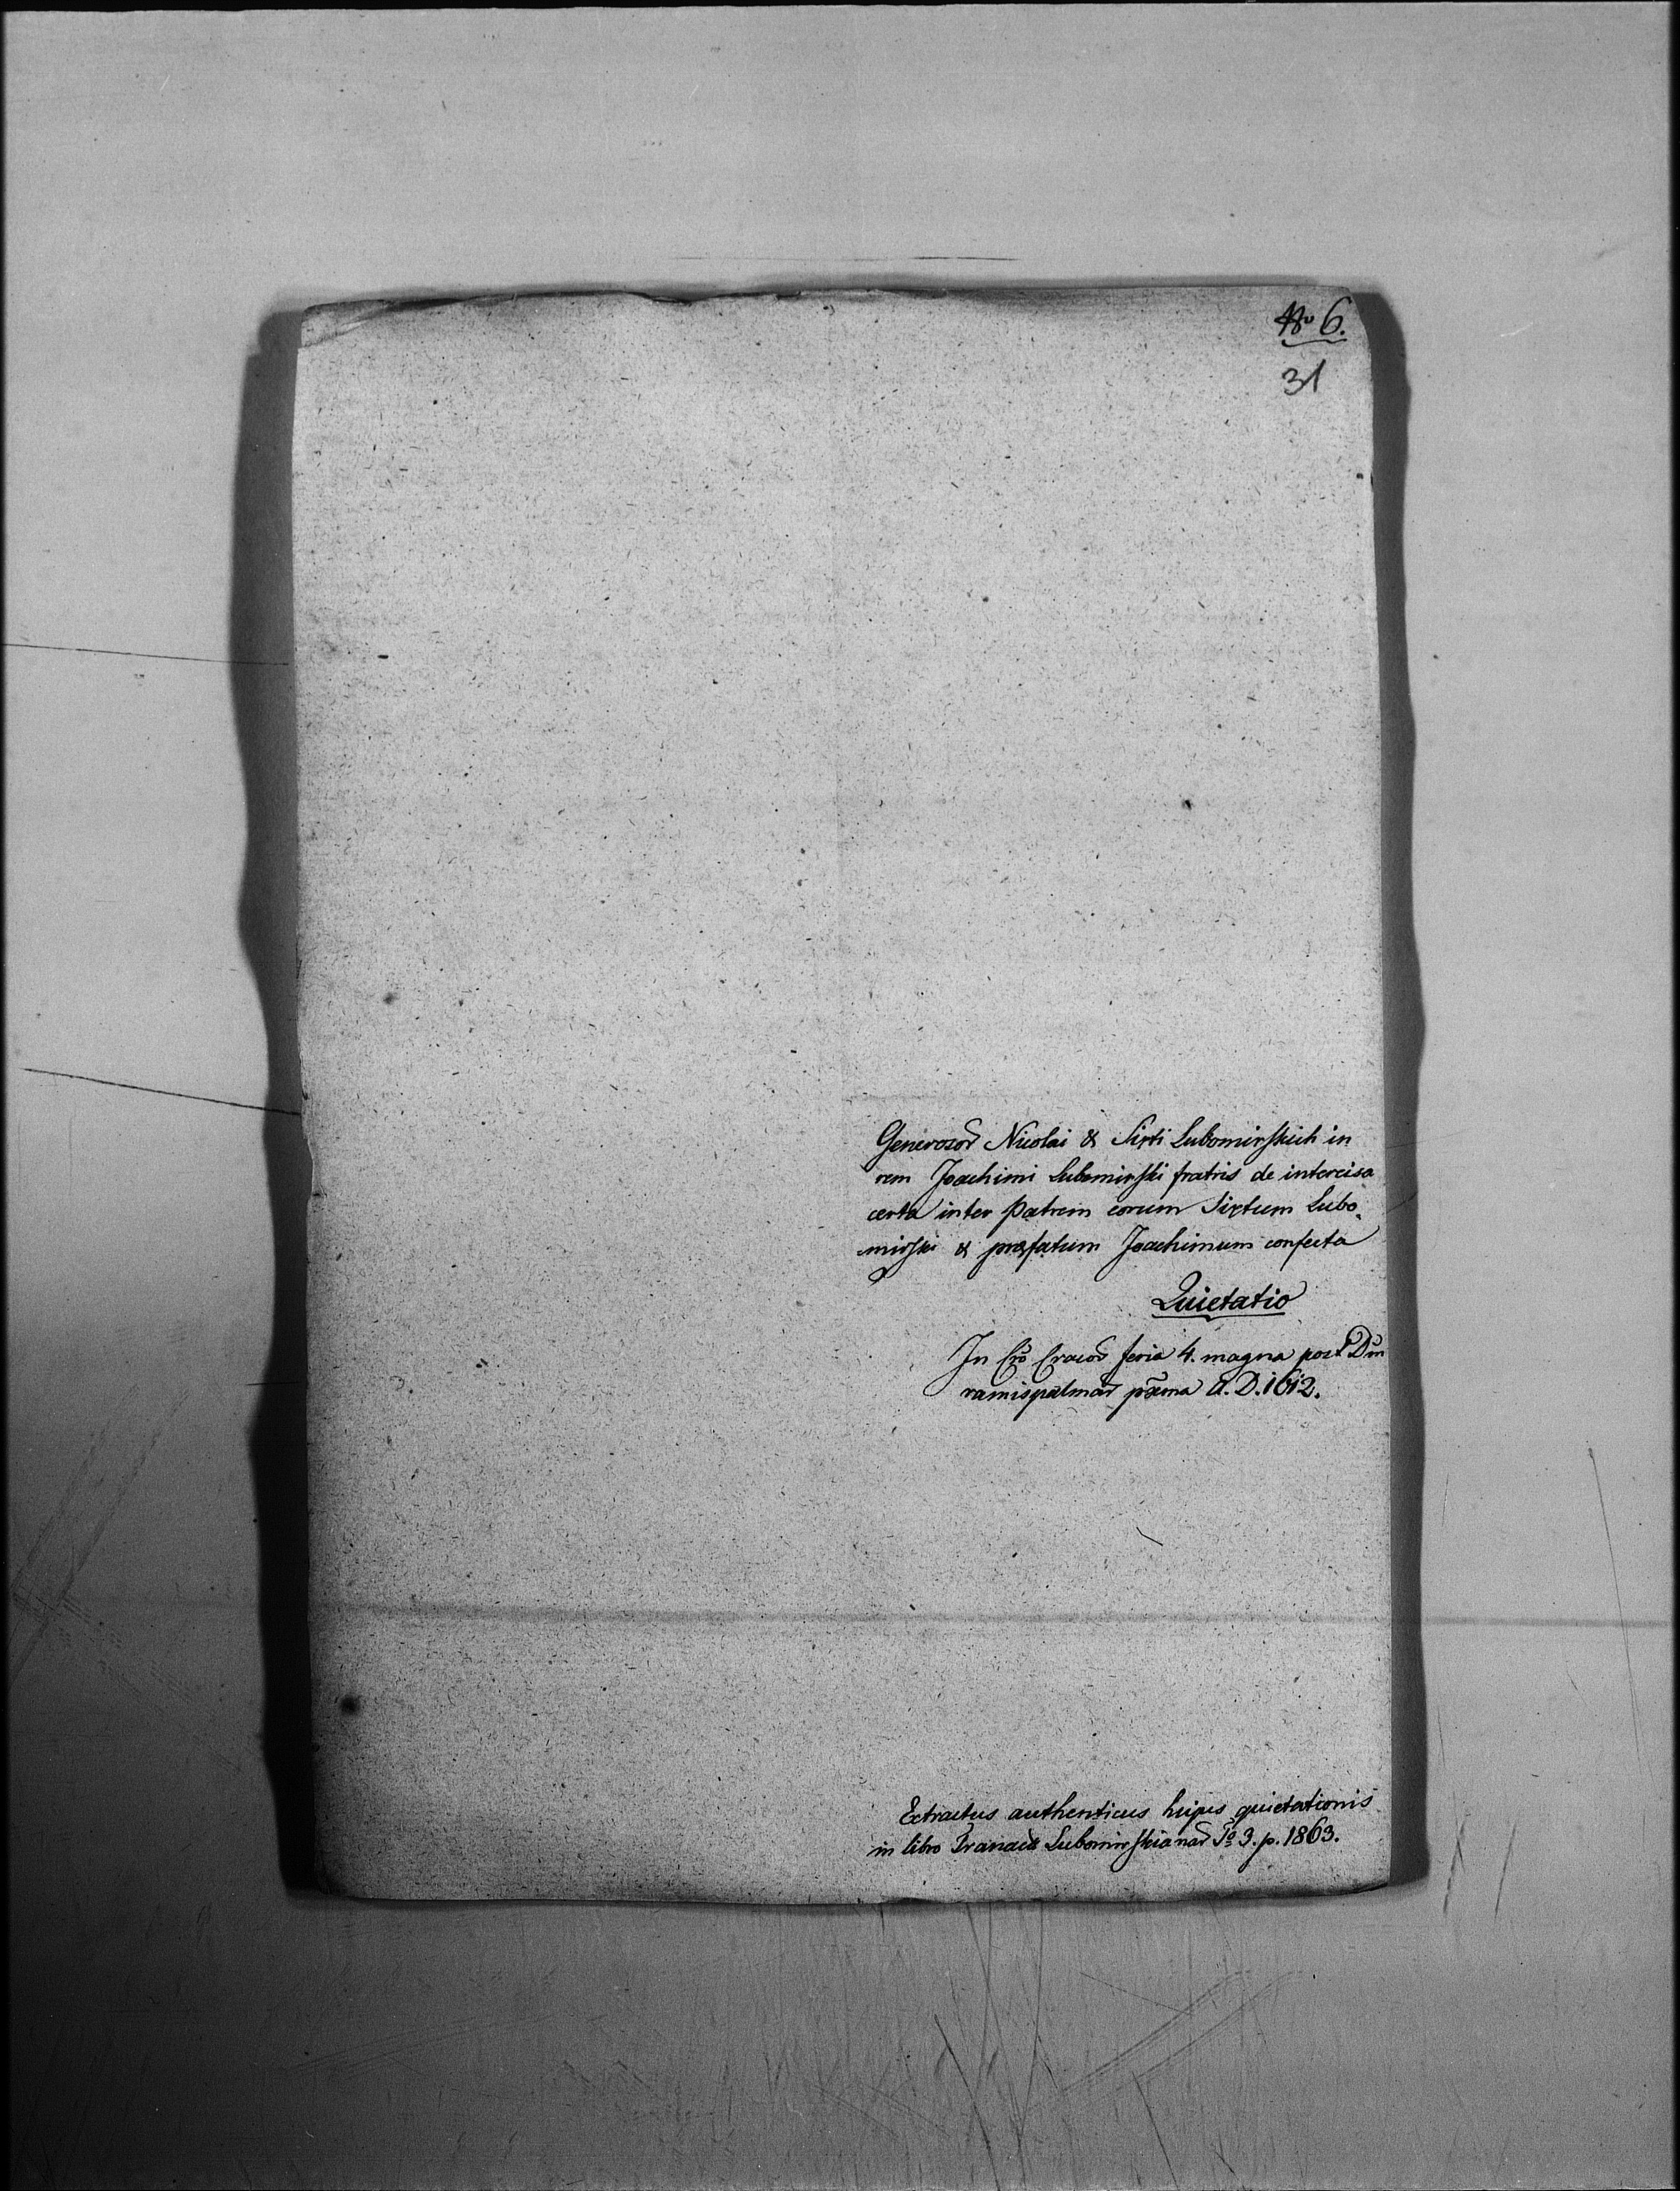 No 6.
31
Generosor Nicolai & Sixti Lubomirskich in
rem Joachimi Lubomirski fratris de intercisa
certa inter Patrem eorum Sixtum Lubo-
mirski & præfatum Joachimum confecta
Quietatio
In Cro Cracov feria 4. magna post Dm
ramispalmar pxma A. D. 1612.
Extractus authenticus hujus quietationis
in libro Lubomirskianar To 3. p. 1863.